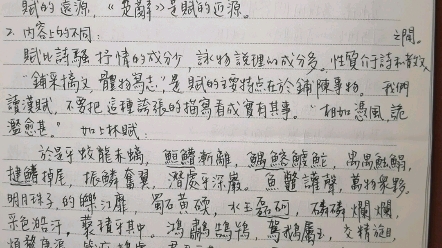 賦的遠源,“楚辭”是賦的近源。
2. 内容上的不同: 之間。
賦比詩騷抒情的成分少,詠物說理的成分多。性質介於詩和散文
“鋪采摛文,體物寫志”,是賦的主要特点在於鋪陳事物。我們
讀漢賦,不要把這種誇張的描寫看成實有其事。“相如憑風,詭
濫愈甚。” 如上林賦:
於是乎蛟龍赤螭,䱎䲛漸離,鰅鰫鰬魠,禺禺魼鰨,
揵鰭掉尾,振鱗奮翼,潛處乎深巖。魚鱉讙聲,萬物衆夥。
明月珠子,的皪江靡,蜀石黃碝,水玉磊砢,磷磷爛爛,
采色澔汗,藂積乎其中。鴻鷫鵠鴇,鴐鵝屬玉,交精旋目